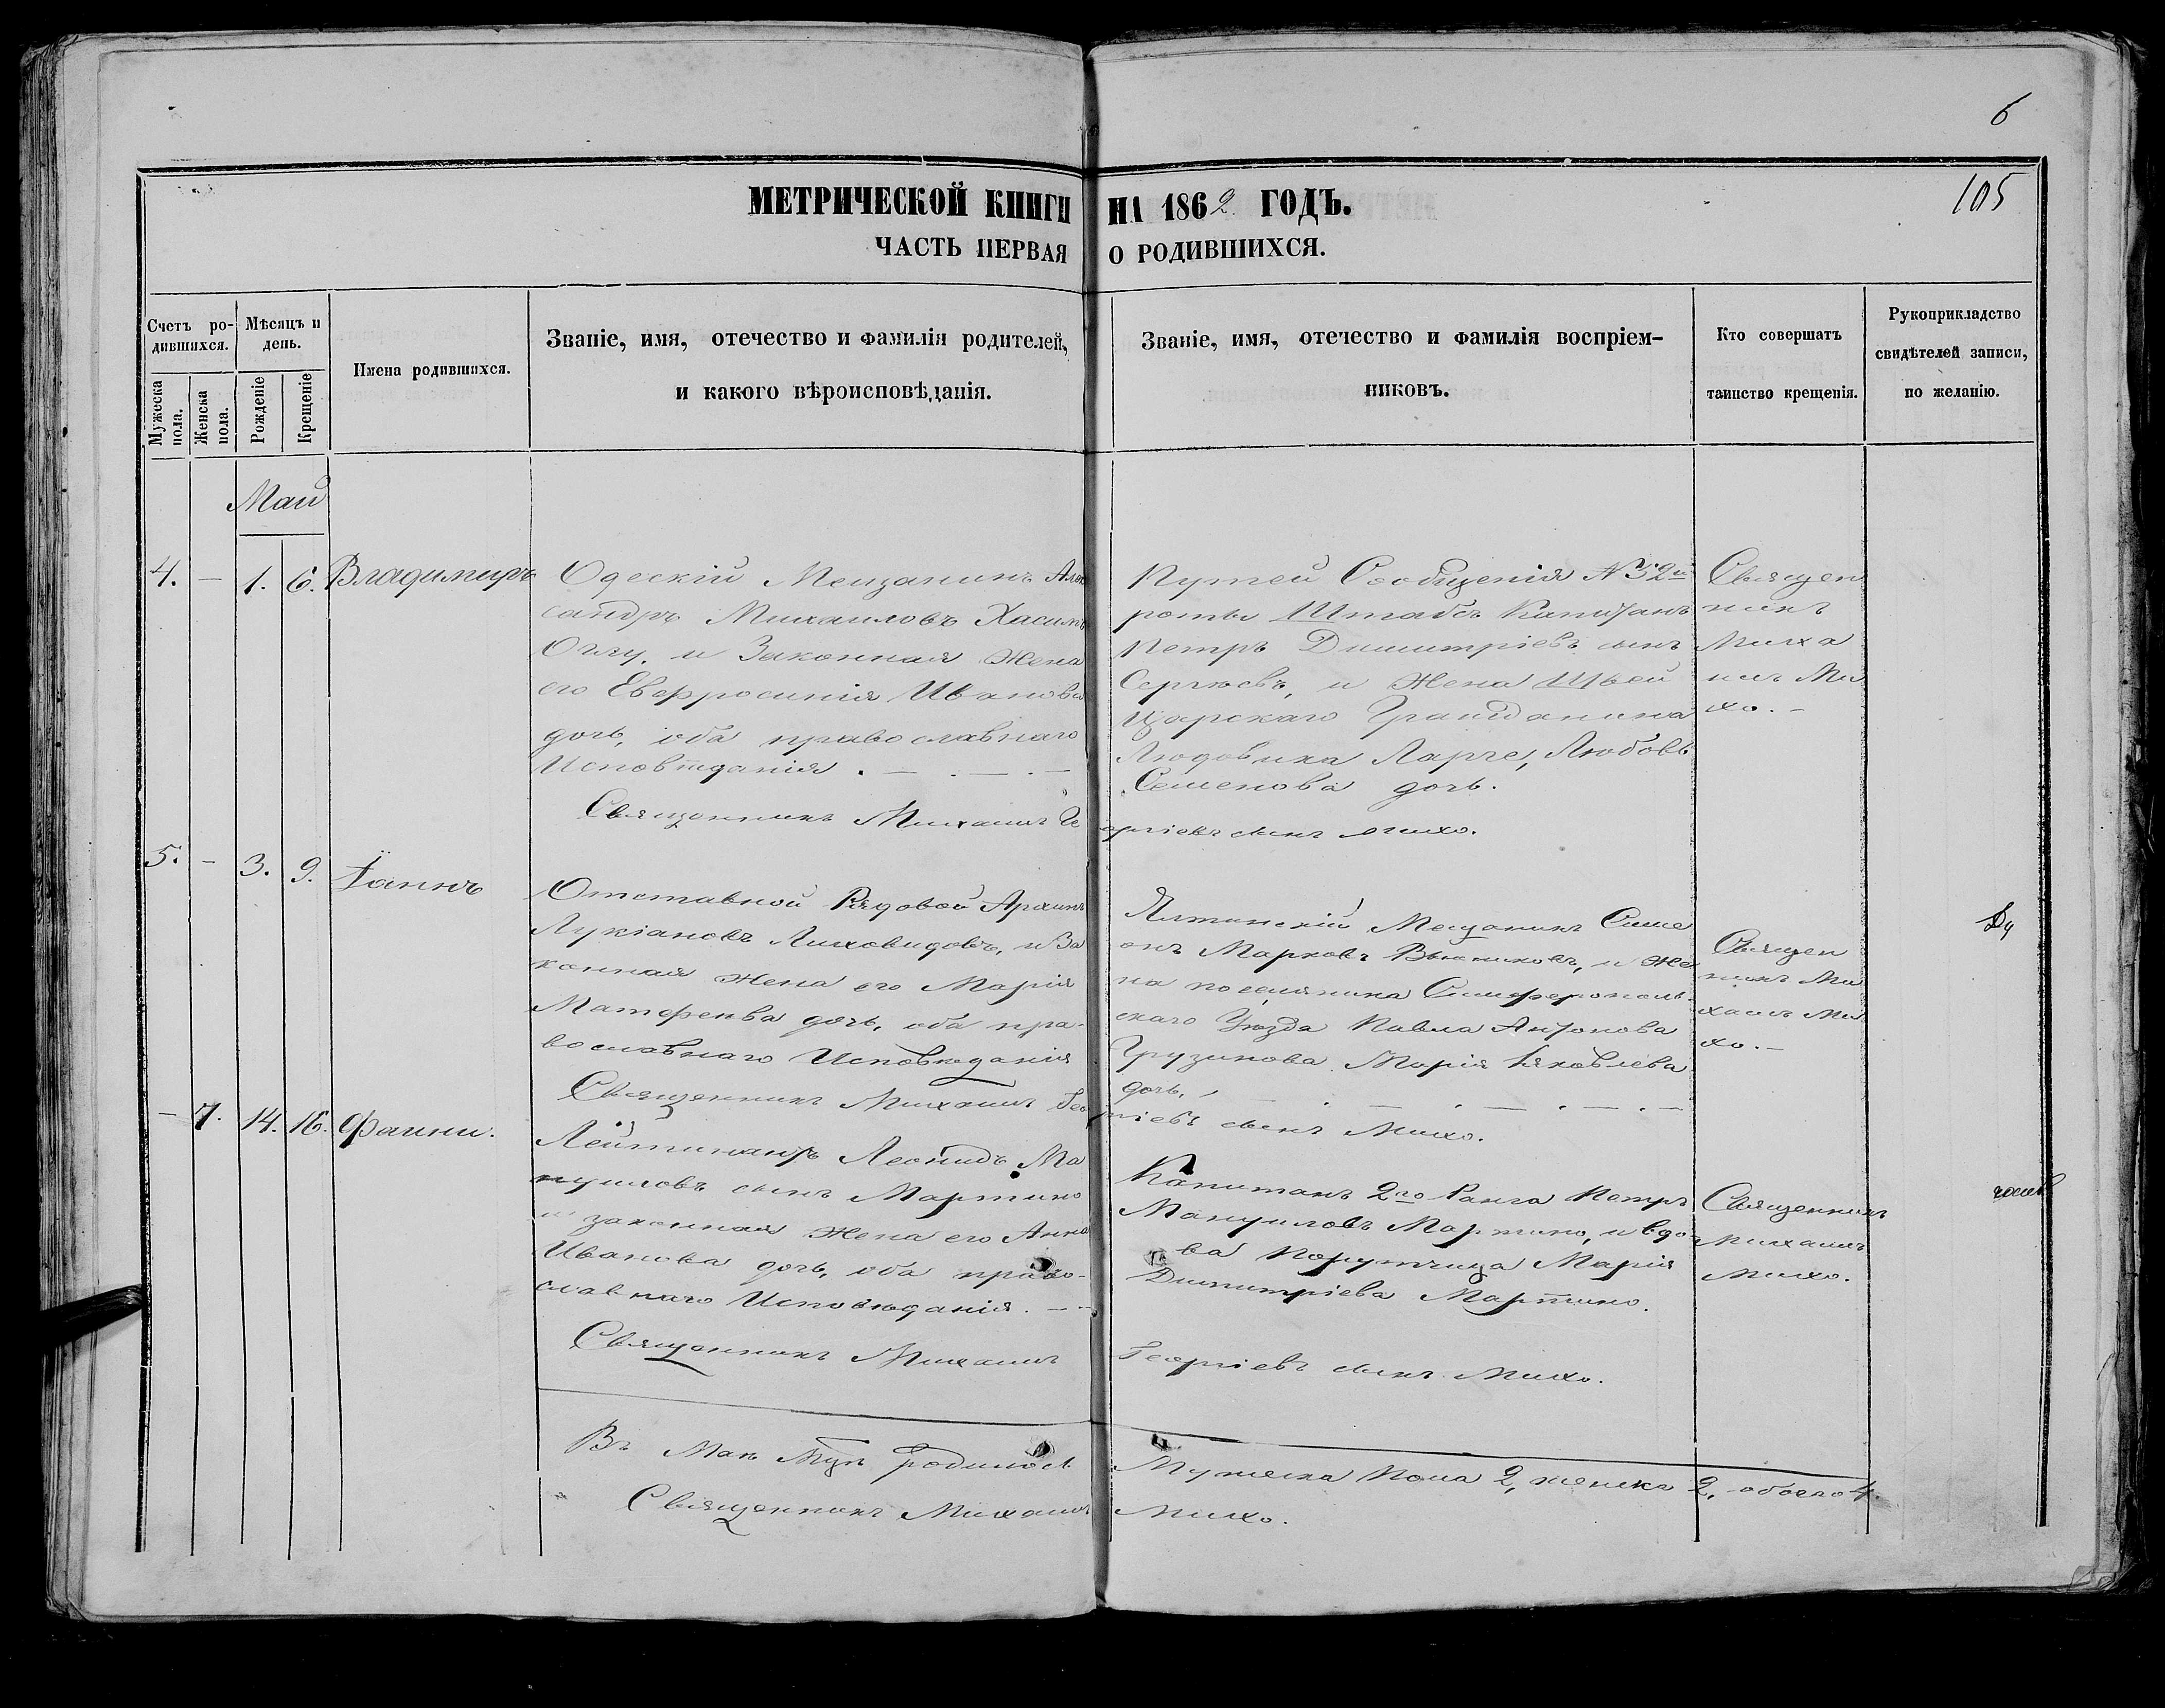 6
105
МЕТРИЧЕСКОЙ КНИГИ НА 1862 ГОДЪ.
ЧАСТЬ ПЕРВАЯ О РОДИВШИХСЯ.
Счетъ ро-
дившихся.
Мужеска пола.
Женска пола.
Мѣсяцъ и
день.
Рожденіе
Крещеніе
Имена родившихся.
Званіе, имя, отечество и фамилія родителей,
и какого вѣроисповѣданія.
Званіе, имя, отечество и фамилія воспріем-
никовъ.
Кто совершатъ
таинство крещенія.
Рукоприкладство
свидѣтелей записи,
по желанію.
Май
4. – 1. 6. Владимиръ
Одескій Мещанинъ Алек
сандръ Михаиловъ Хасимъ
Оглу, и Законная Жена
его Евфросинія Иванова
дочь, оба православнаго
Исповѣданія. — . — . —
Путей Сообщенія № 32й
роты Штабсъ Капитанъ
Петръ Димитріевъ сынъ
Сергѣевъ, и Жена Швей
царскаго Гражданина
Людовика Ларге, Любовь
Семенова дочь.
Священ
никъ
Миха
илъ Ми
хо. –
Священникъ Михаилъ Ге
оргіевъ сынъ Михо.
5. – 3. 9. Іоаннъ
Отставной Рядовой Архипъ
Лукіановъ Лиховидовъ, и За
конная Жена его Марія
Матфеева дочь, оба пра-
вославнаго Исповѣданія
Ялтинскій Мещанинъ Симе
онъ Марковъ и Же
на поселянина Симферополь-
скаго Уѣзда Павла Антонова
Грузинова Марія Яковлева
дочь, — . — . — . —
Священ
никъ Ми
хаилъ Ми
хо. –
Священникъ Михаилъ Гео
ргіевъ сынъ Михо.
– 7. 14. 16. Фанни.
Лейтинантъ Леонидъ Ма
нуиловъ сынъ Мартино
и законная Жена его Анна
Иванова дочь, оба право-
славнаго Исповѣданія. — –
Капитанъ 2го Ранга Петръ
Мануиловъ Мартино, и вдо
ва Порутчица Марія
Димитріева Мартино.
Священникъ
Михаилъ
Михо.
Священникъ Михаилъ
Георгіевъ сынъ Михо.
Въ Маѣ родилось Мужеска Пола 2, женска 2, обоего 4.
Священникъ Михаилъ Михо.